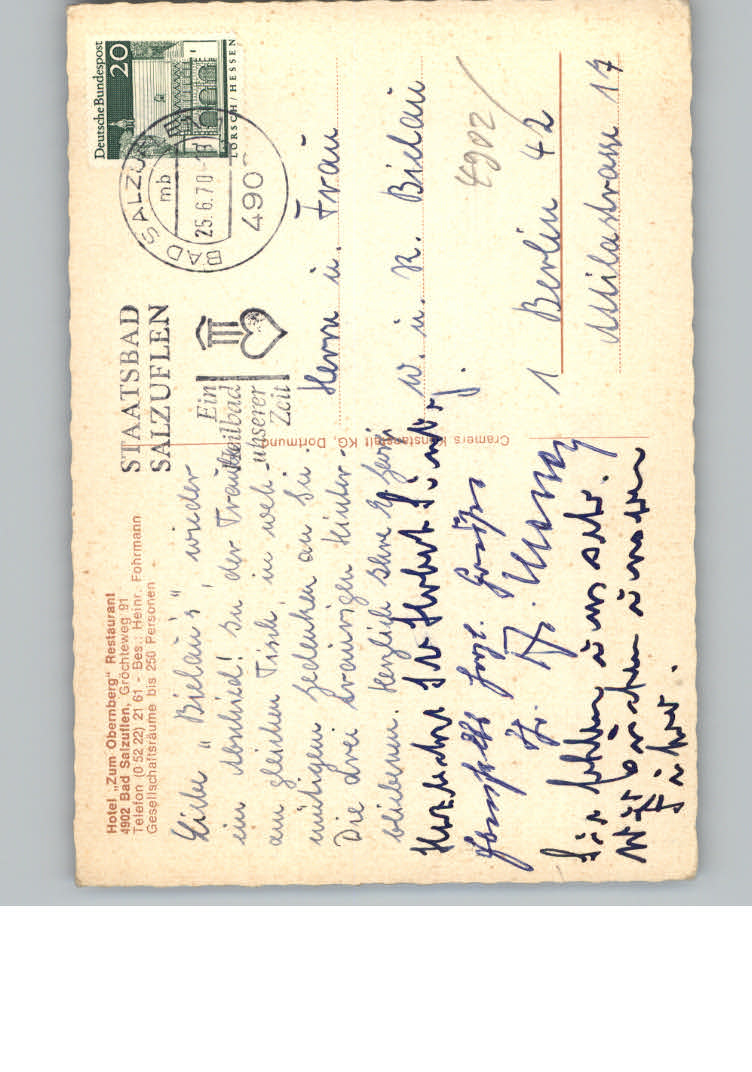 Hotel „Zum Obernberg" Restaurant
4902 Bad Salzuflen, Gröchteweg 91
Telefon (0 52 22) 21 61 - Bes.: Heinr. Fohrmann
Gesellschaftsräume bis 250 Personen
Liebe „Bielau's", wieder
ein Abschied! In der Trauben
am gleichen Tisch in weh-
mütigem Gedenken an Sie.
Die drei traurigen Hinter-
bliebenen. Herzlich
Herbert
ebenfalls herzl. Grüße
Ihr
Sie fehlen uns sehr.
Wir
STAATSBAD
SALZUFLEN
Ein
Heilbad
unserer
Zeit
BAD SALZUFLEN
mb
25.6.70
490
Deutsche Bundespost
20
LORSCH / HESSEN
Cramers Kunstanstalt KG, Dortmund
Herrn u. Frau
W. u. R. Bielau
4902/
1 Berlin 42
Milastrasse 17